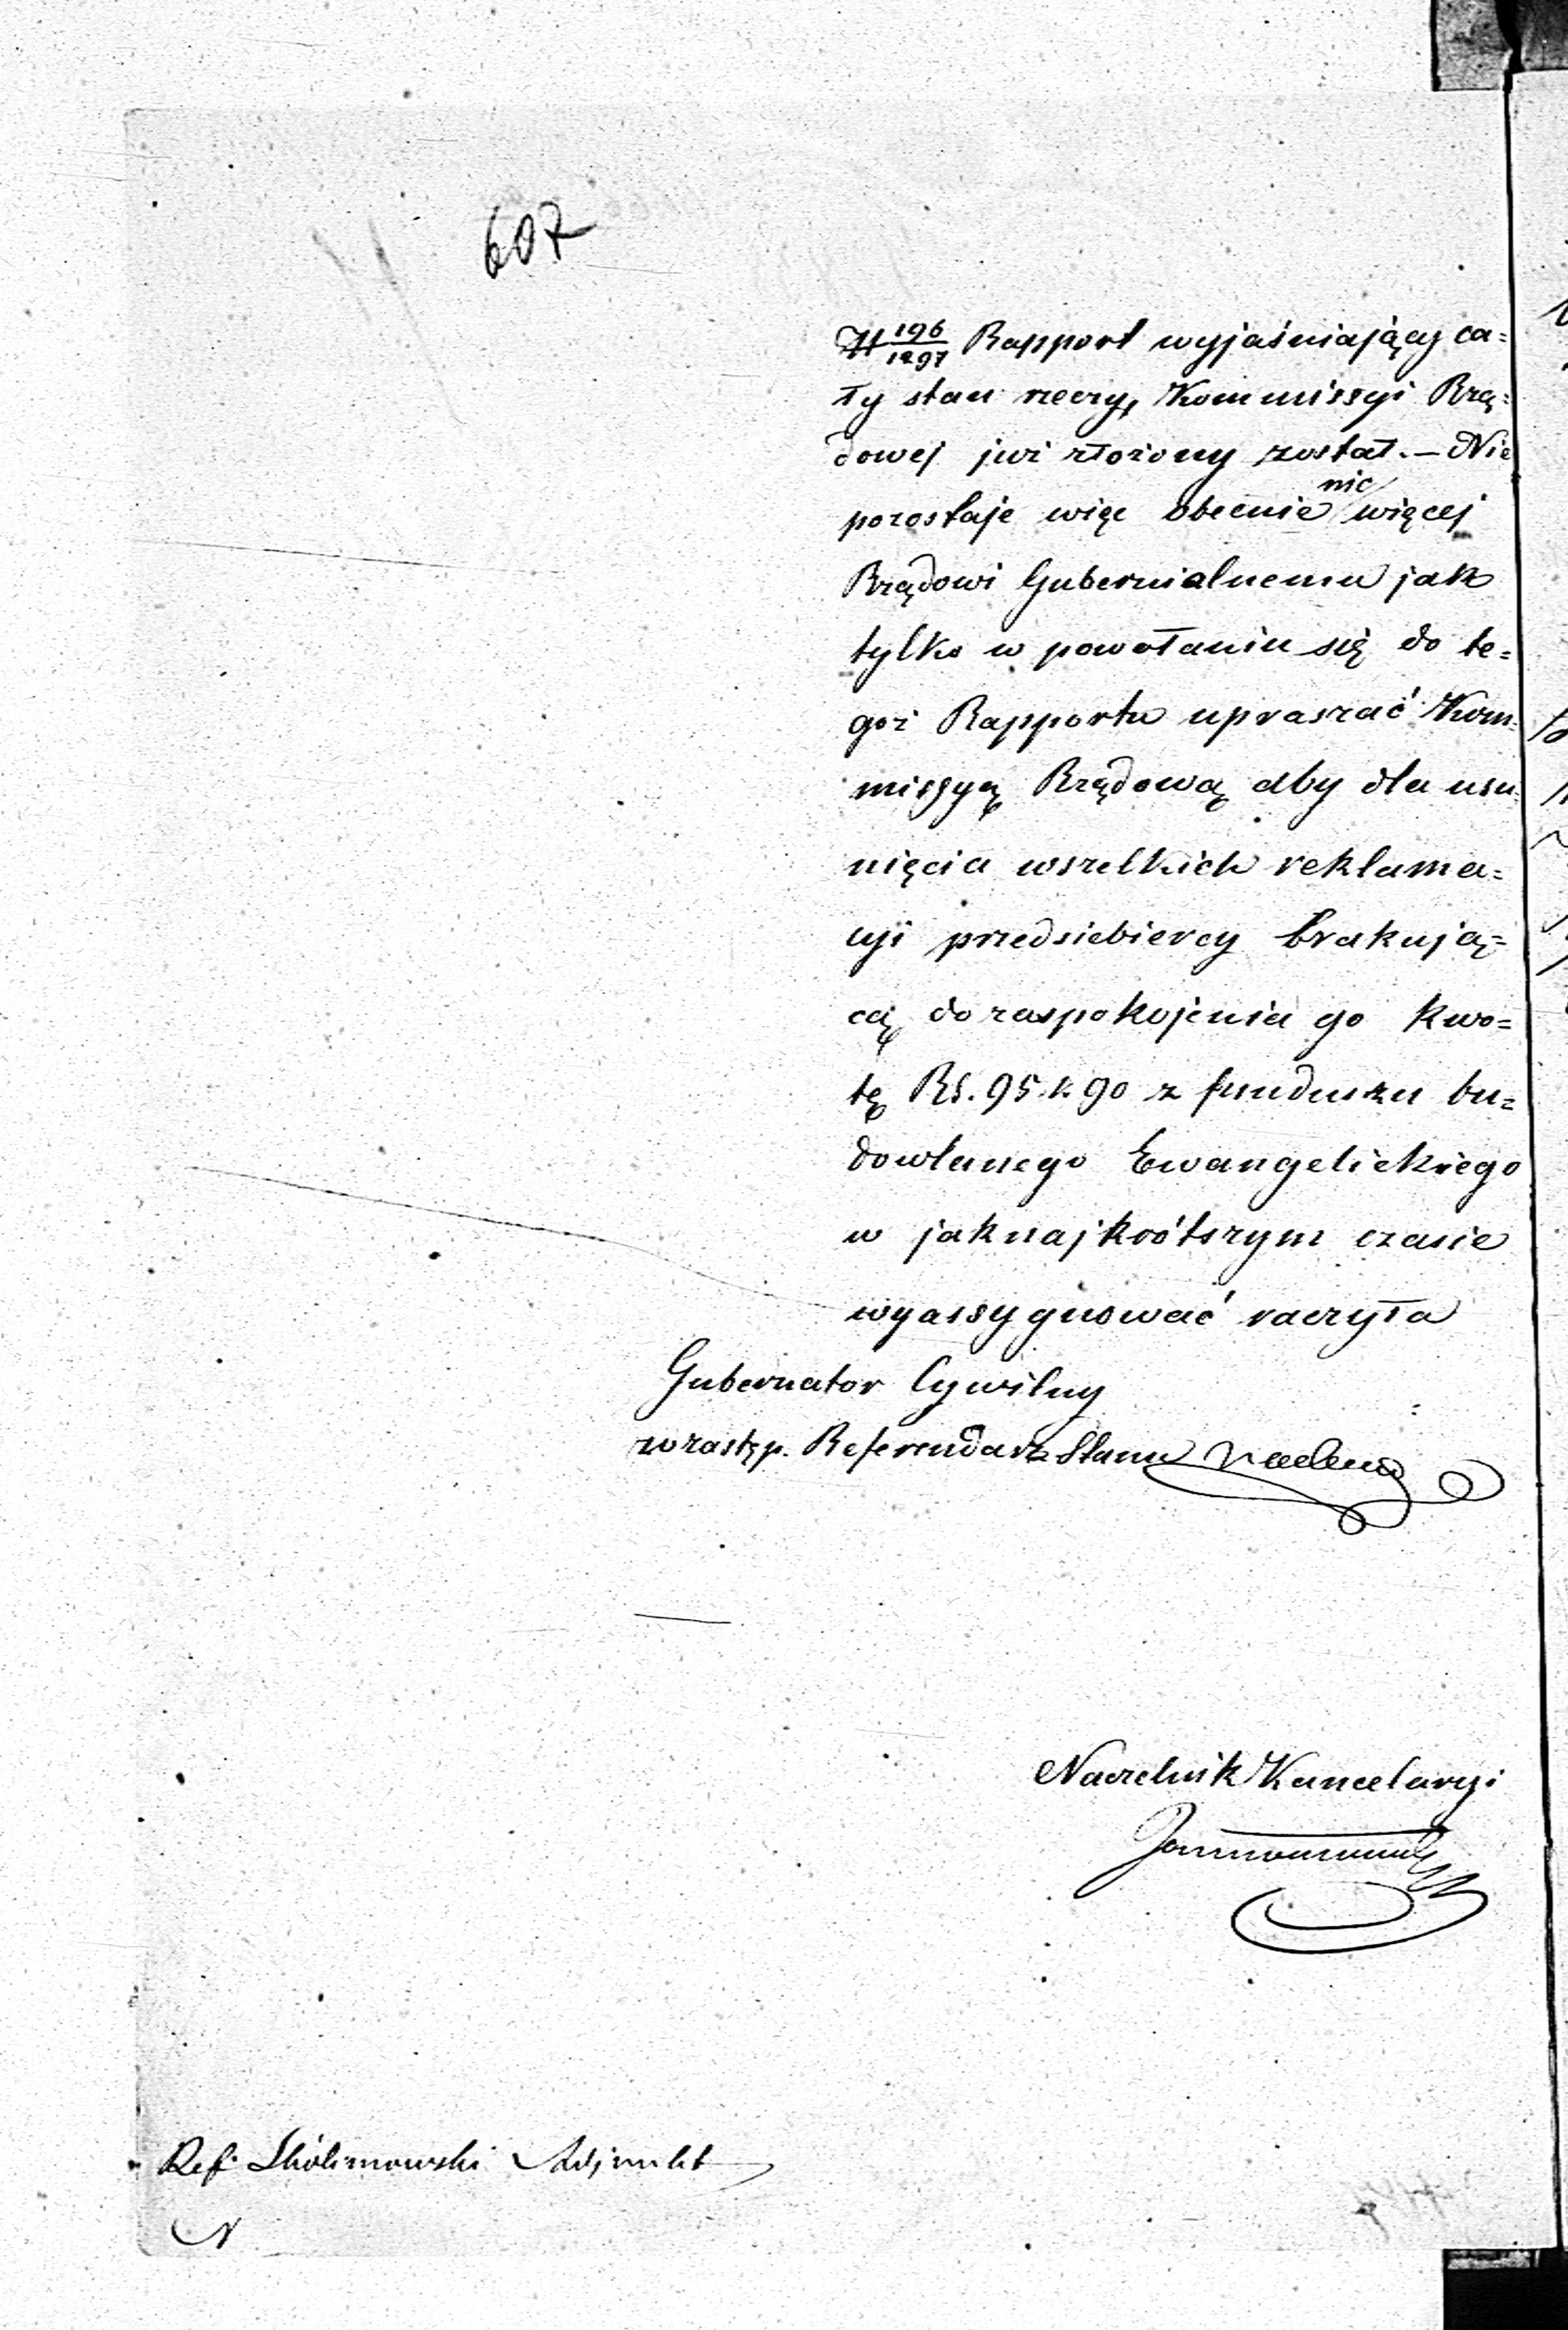 607
N 196/1297 Rapport wyjaśniający ca=
ły stan rzeczy, Kommissyi Rzą=
dowej już złożony został. — Nie
pozostaje więc obecnie nic więcej
Rządowi Gubernialnemu jak
tylko w powołaniu się do te=
goż Rapportu upraszać Kom=
missyą Rządową aby dla usu=
nięcia wszelkich reklama=
cji przedsiebiercy brakują=
cą do zaspokojenia go kwo=
tę Rś. 95 k. 90 z funduszu bu=
dowlanego Ewangelickiego
w jaknajkrótszym czasie
wyassygnować raczyła
Gubernator Cywilny
w zastęp. Referendarz Stanu
Naczelnik Kancelaryi
Ref. Skólimowski Adjunkt